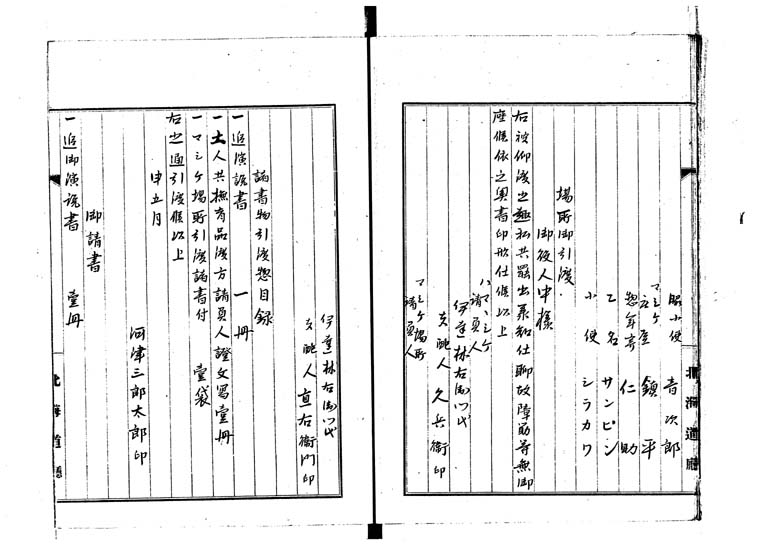 脇小使 音次郎
マシケ
在住 鎮平
惣年寄 仁助
乙名 サンピン
小使 シラカワ
場所御引渡
御役人中様
右被仰渡之趣私共罷出承知仕聊故障筋等無御
座候依之奥書印形仕候以上
ハママシケ
請負人
伊達林右衛門代
支配人 久兵衛印
マシケ場所
請負人
伊達林右衛門代
支配人 直右衛門印
諸書物引渡惣目録
一追演説書 一冊
一土人共撫育品渡方請負人證文写壹冊
一マシケ場所引渡諸書付 壹袋
右之通引渡候以上
申五月
河津三郎太郎印
御請書
一追御演説書 壹冊
北海道廳
北海道廳